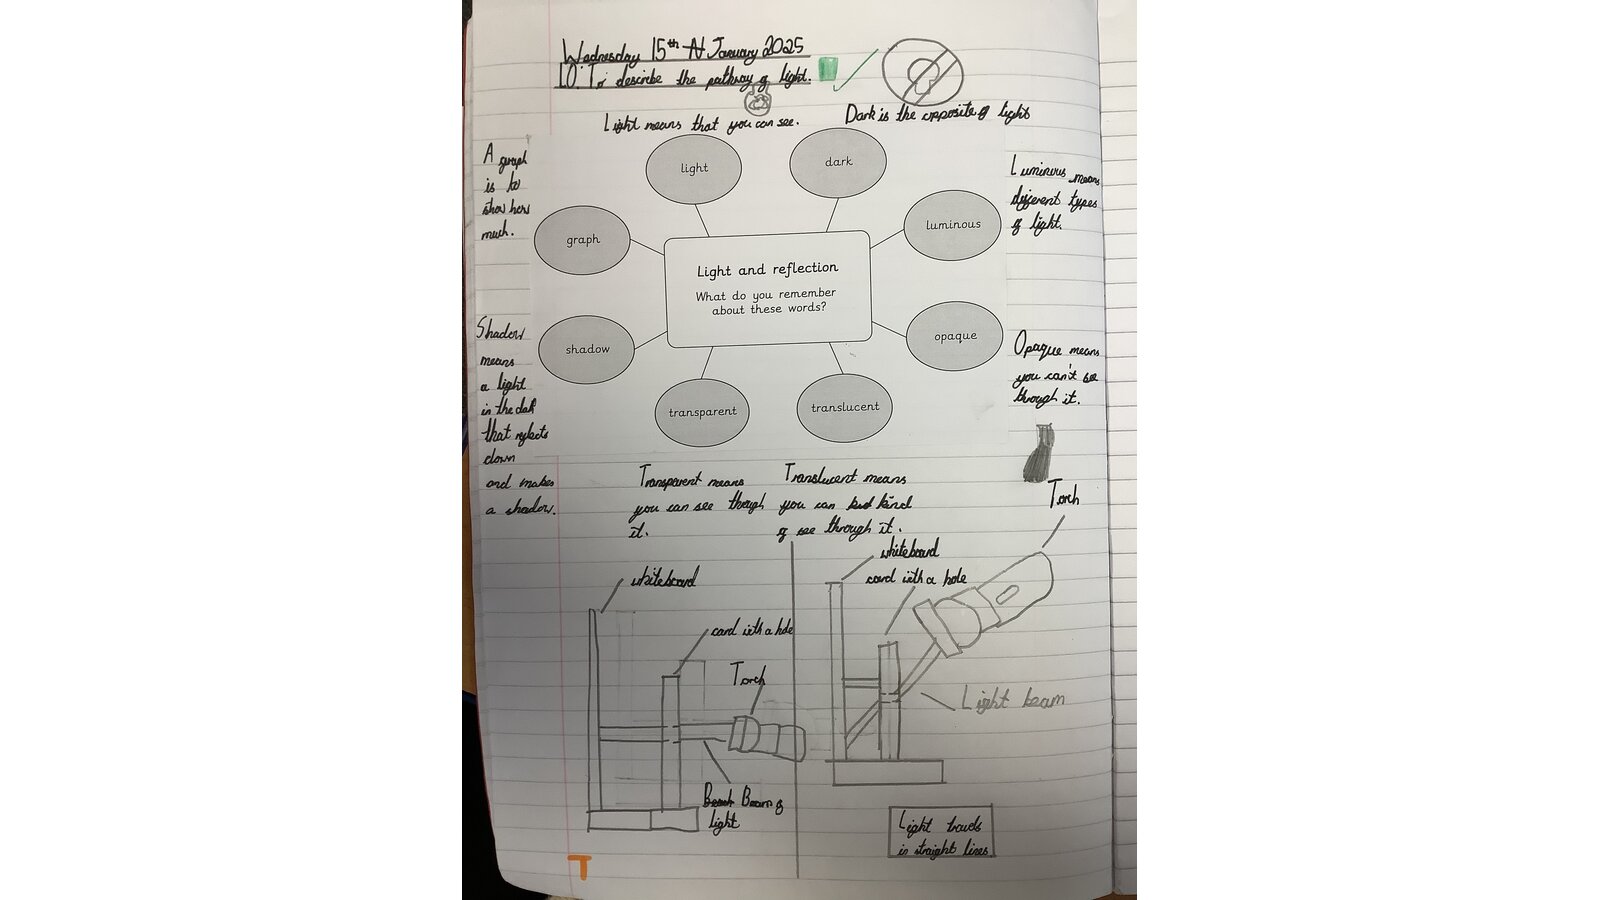 Wednesday 15th January 2025
LO: To describe the pathway of light.
Light means that you can see.
Dark is the opposite of light
A graph
is to
show how
much.
light
dark
Luminous means
different types
of light.
graph
luminous
Light and reflection
What do you remember
about these words?
Shadow
means
a light
in the dark
that reflects
down
and makes
a shadow.
shadow
opaque
Opaque means
you can't see
through it.
transparent
translucent
Transparent means
you can see though
it.
Translucent means
you can kind
of see through it.
whiteboard
card with a hole
Torch
Beam of
light
whiteboard
card with a hole
Torch
Light beam
Light travels
in straight lines.
T